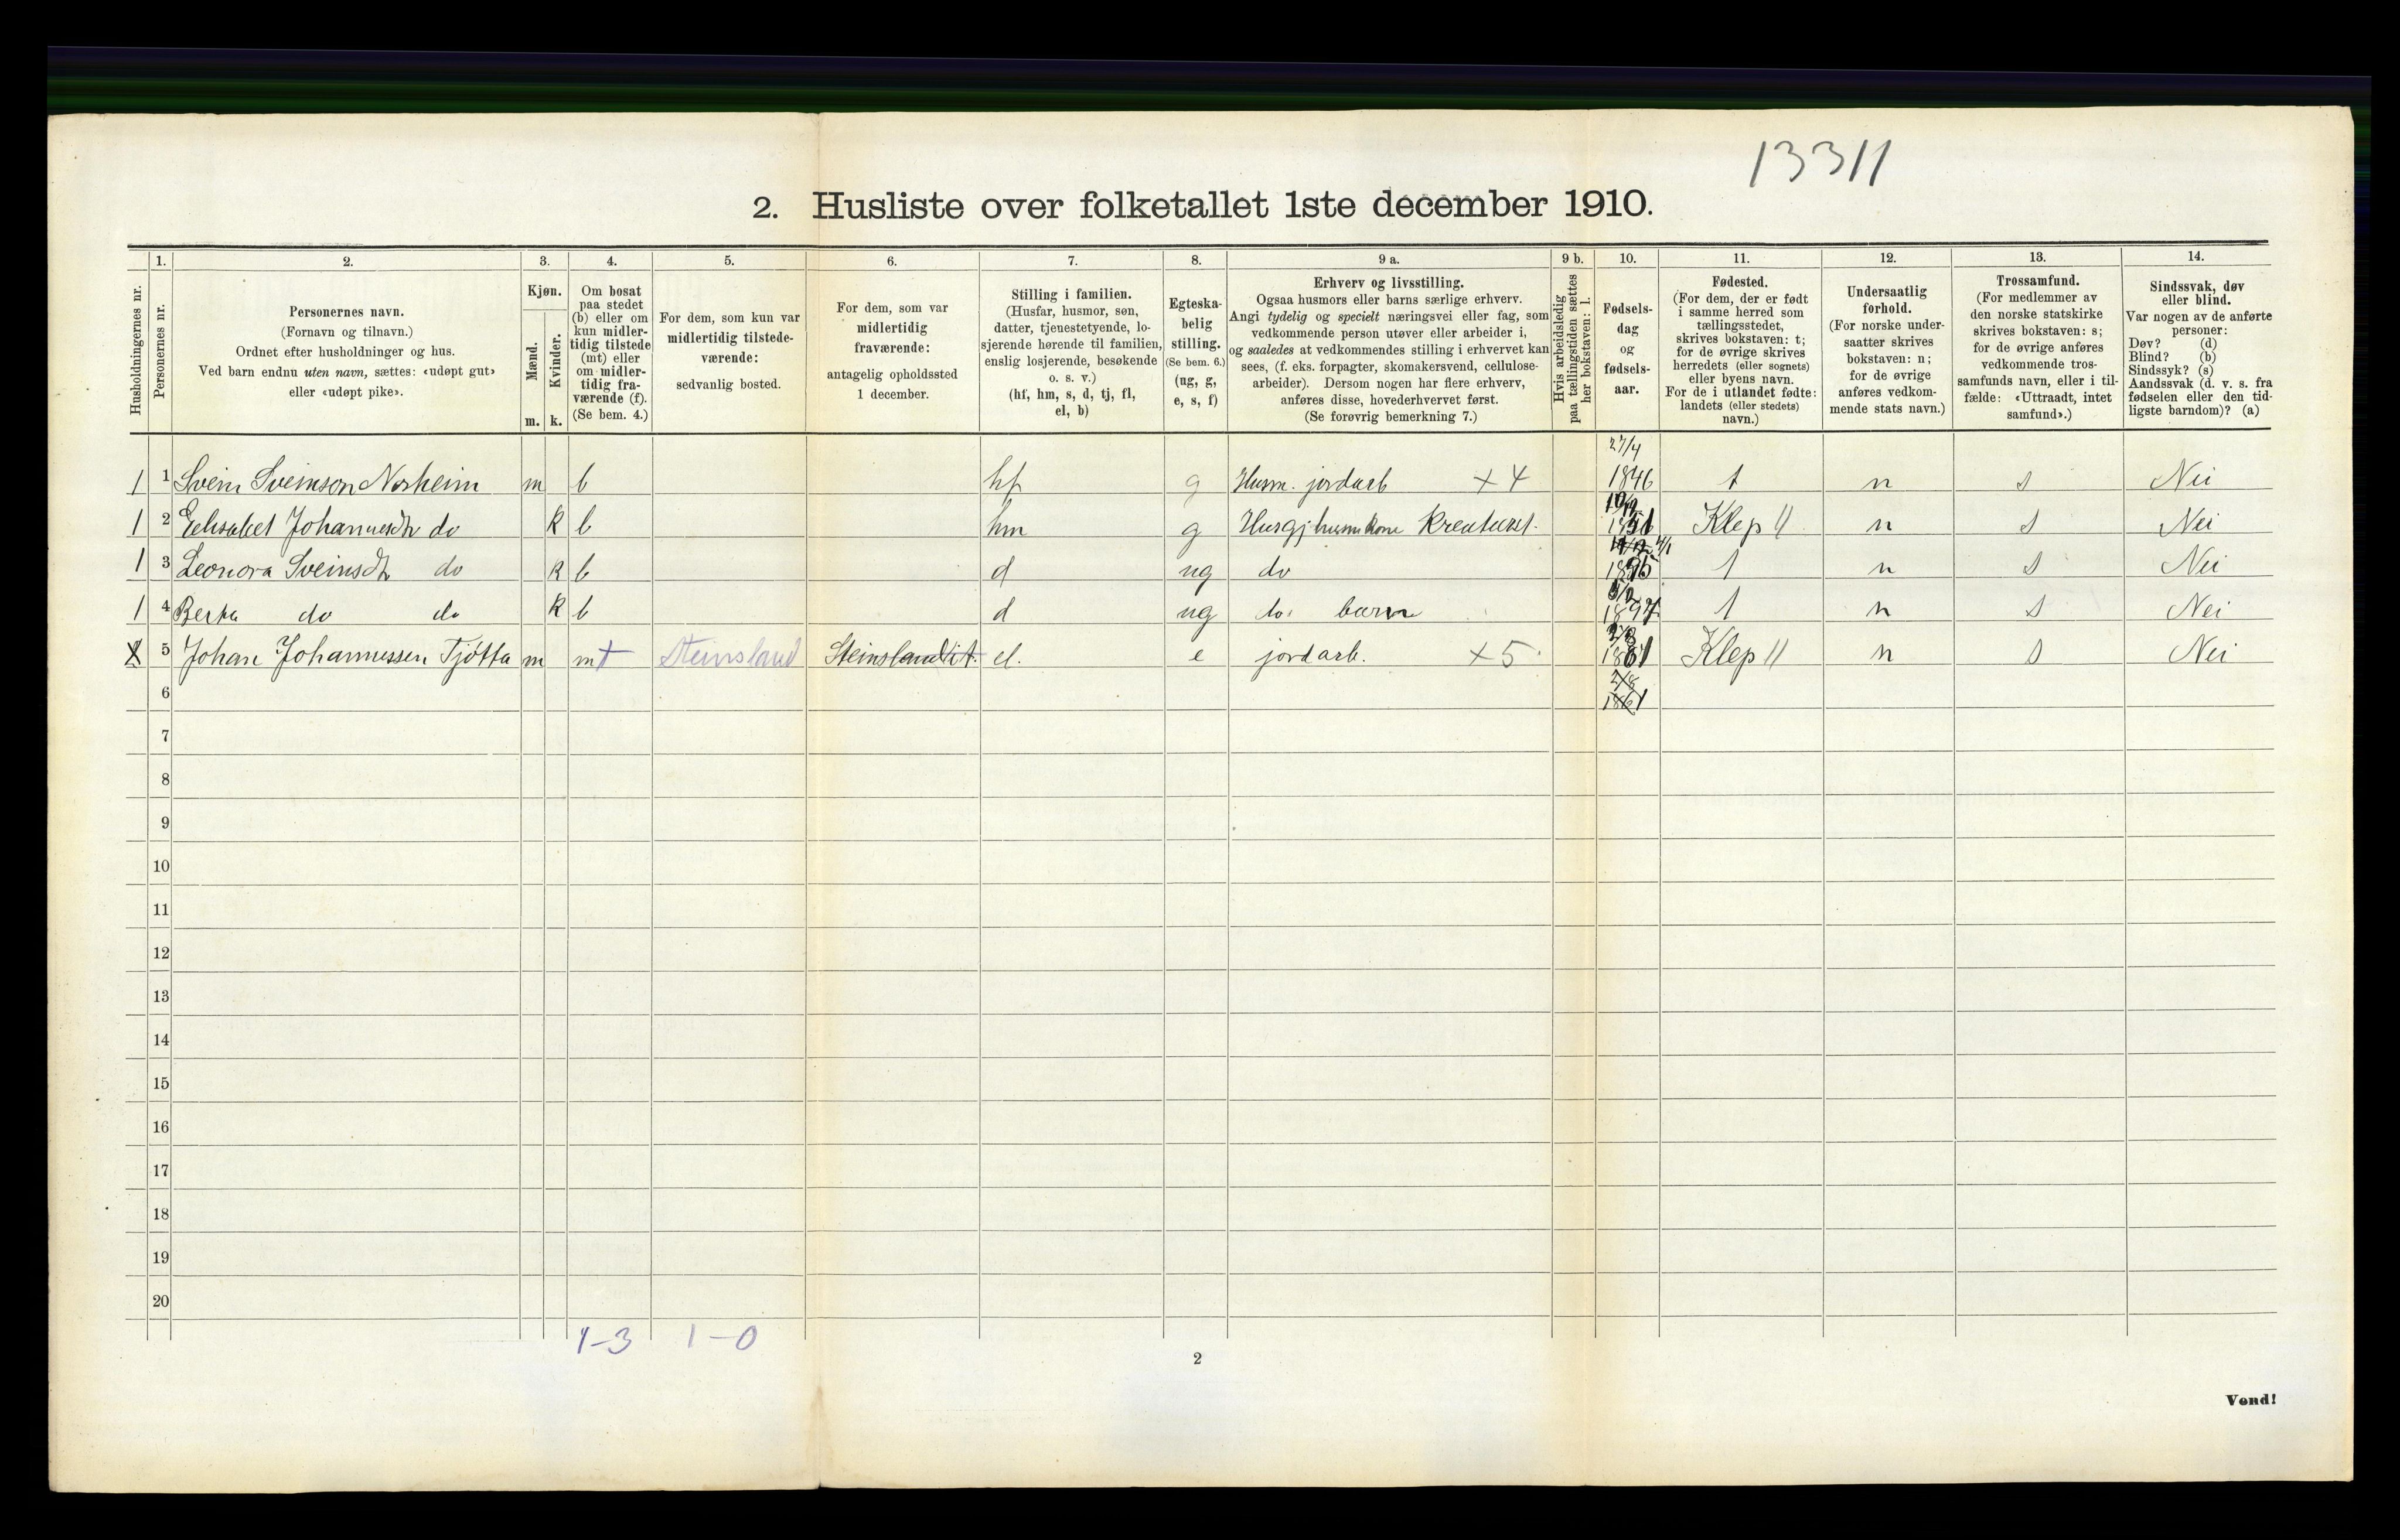 13311
2. Husliste over folketallet 1ste december 1910.
Husholdningernes nr.
1.
Personernes nr.
2.
Personernes navn.
(Fornavn og tilnavn.)
Ordnet efter husholdninger og hus.
Ved barn endnu uten navn, sættes: «udøpt gut»
eller «udøpt pike».
3.
Kjøn.
Mænd.
Kvinder.
m. k.
4.
Om bosat
paa stedet
(b) eller om
kun midler-
tidig tilstede
(mt) eller
om midler-
tidig fra-
værende (f).
(Se bem. 4.)
5.
For dem, som kun var
midlertidig tilstede-
værende:
sedvanlig bosted.
6.
For dem, som var
midlertidig
fraværende:
antagelig opholdssted
1 december.
7.
Stilling i familien.
(Husfar, husmor, søn,
datter, tjenestetyende, lo-
sjerende hørende til familien,
enslig losjerende, besøkende
o. s. v.)
(hf, hm, s, d, tj, fl,
el, b)
8.
Egteska-
belig
stilling.
(Se bem. 6.)
(ug, g,
e, s, f)
9 a.
Erhverv og livsstilling.
Ogsaa husmors eller barns særlige erhverv.
Angi tydelig og specielt næringsvei eller fag, som
vedkommende person utøver eller arbeider i,
og saaledes at vedkommendes stilling i erhvervet kan
sees, (f. eks. forpagter, skomakersvend, cellulose-
arbeider). Dersom nogen har flere erhverv,
anføres disse, hovederhvervet først.
(Se forøvrig bemerkning 7.)
9 b.
Hvis arbeidsledig
paa tællingstiden sættes
her bokstaven: l.
10.
Fødsels-
dag
og
fødsels-
aar.
11.
Fødested.
(For dem, der er født
i samme herred som
tællingsstedet,
skrives bokstaven: t;
for de øvrige skrives
herredets (eller sognets)
eller byens navn.
For de i utlandet fødte:
landets (eller stedets)
navn.)
12.
Undersaatlig
forhold.
(For norske under-
saatter skrives
bokstaven: n;
for de øvrige
anføres vedkom-
mende stats navn.)
13.
Trossamfund.
(For medlemmer av
den norske statskirke
skrives bokstaven: s;
for de øvrige anføres
vedkommende tros-
samfunds navn, eller i til-
fælde: «Uttraadt, intet
samfund».)
14.
Sindssvak, døv
eller blind.
Var nogen av de anførte
personer:
Døv? (d)
Blind? (b)
Sindssyk? (s)
Aandssvak (d. v. s. fra
fødselen eller den tid-
ligste barndom)? (a)
27/4
1 1 Svein Sveinson Norheim m b hf g Husm. jordarb + 4 1846 t n s Nei
1 2 Johannesdtr do k b hm g Husgj husmkone Kreaturst. Klep 11 n s Nei
4/1
1 3 Leonora Sveinsdtr do k b d ug do t n s Nei
1 4 Berta do do k b d ug do barn 1897 t n s Nei
X 5 Johan Johannessen Tjøtta m mt Steinsland Steinsland it. el. e jordarb. + 5 1861 Klep 11 n s Nei
6 2/8
1861
7
8
9
10
11
12
13
14
15
16
17
18
19
20
1-3 1-0
2
Vend!